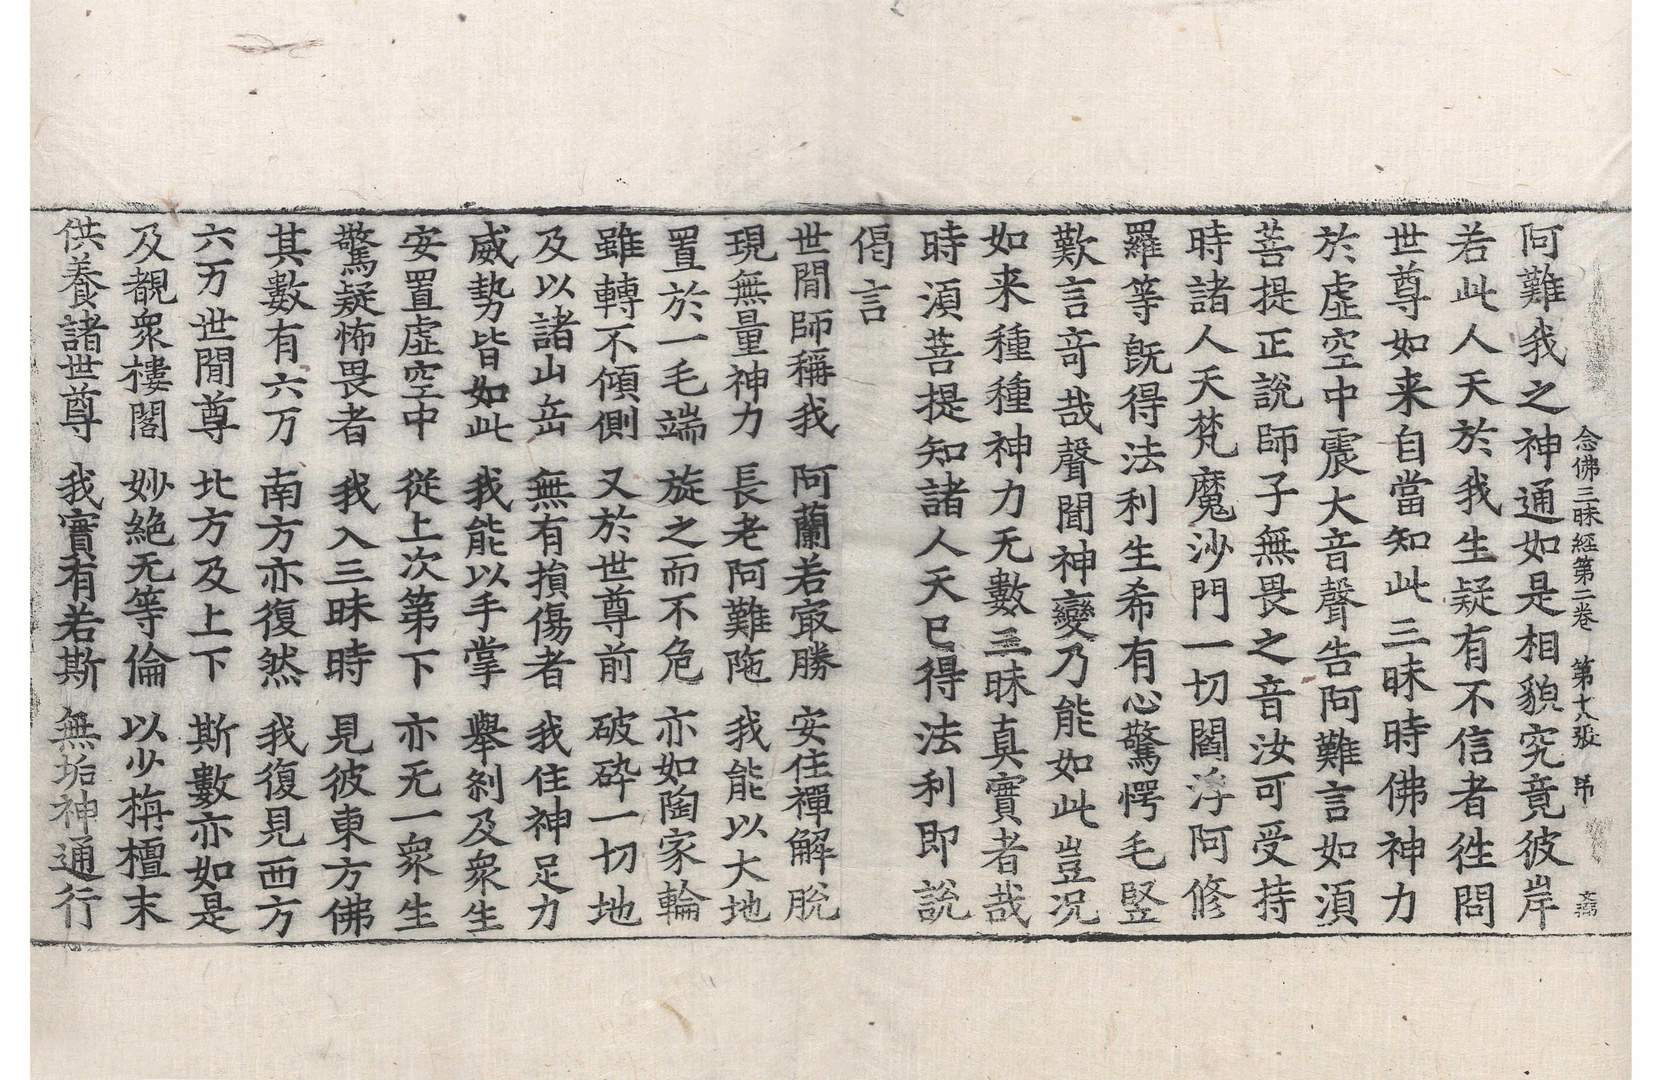 念佛三昧經第二卷　第十八張　帋
阿難我之神通如是相貌究竟彼岸
若此人天於我生疑有不信者徃問
世尊如来自當知此三昧時佛神力
於虛空中震大音聲告阿難言如湏
菩提正說師子無畏之音汝可受持
時諸人天梵魔沙門一切閻浮阿修
羅等旣得法利生希有心驚愕毛竪
歎言竒哉聲聞神變乃能如此豈况
如来種種神力无數三昧真實者哉
時湏菩提知諸人天已得法利即說
偈言
世間師稱我　阿蘭若㝡勝　安住禪解脫
現無量神力　長老阿難陁　我能以大地
置於一毛端　旋之而不危　亦如陶家輪
雖轉不傾側　又於世尊前　破碎一切地
及以諸山岳　無有損傷者　我住神足力
威勢皆如此　我能以手掌　舉剎及衆生
安置虛空中　從上次第下　亦无一衆生
驚疑怖畏者　我入三昧時　見彼東方佛
其數有六万　南方亦復然　我復見西方
六万世間尊　北方及上下　斯數亦如是
及覩衆樓閣　妙絕无等倫　以少栴檀末
供養諸世尊　我實有若斯　無垢神通行